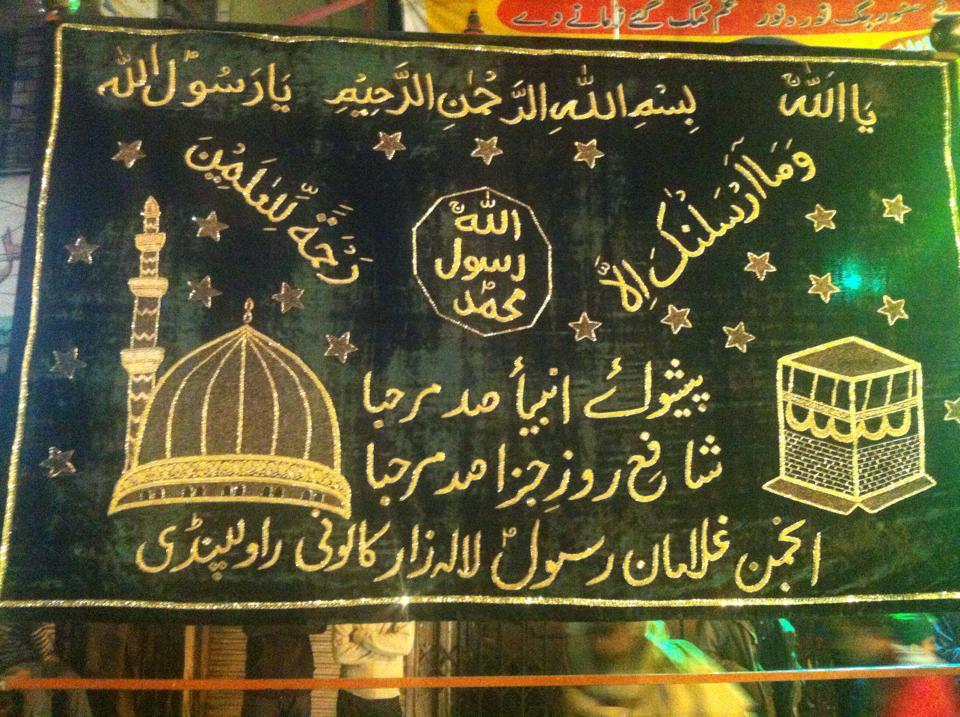 غم مک گئے زمانے دے
یَا اَللّٰہُ بِسْمِ اللّٰہِ الرَّحْمٰنِ الرَّحِیْمِ یَا رَسُوْلَ اللّٰہ
وَمَا اَرْسَلْنٰکَ اِلَّا رَحْمَةً لِّلْعٰلَمِیْنَ
اللّٰہ
رسول
محمد
پیشوائے انبیأ صد مرحبا
شافع روزِ جزا صد مرحبا
انجمن غلامان رسولؐ لالہ زار کالونی راولپنڈی